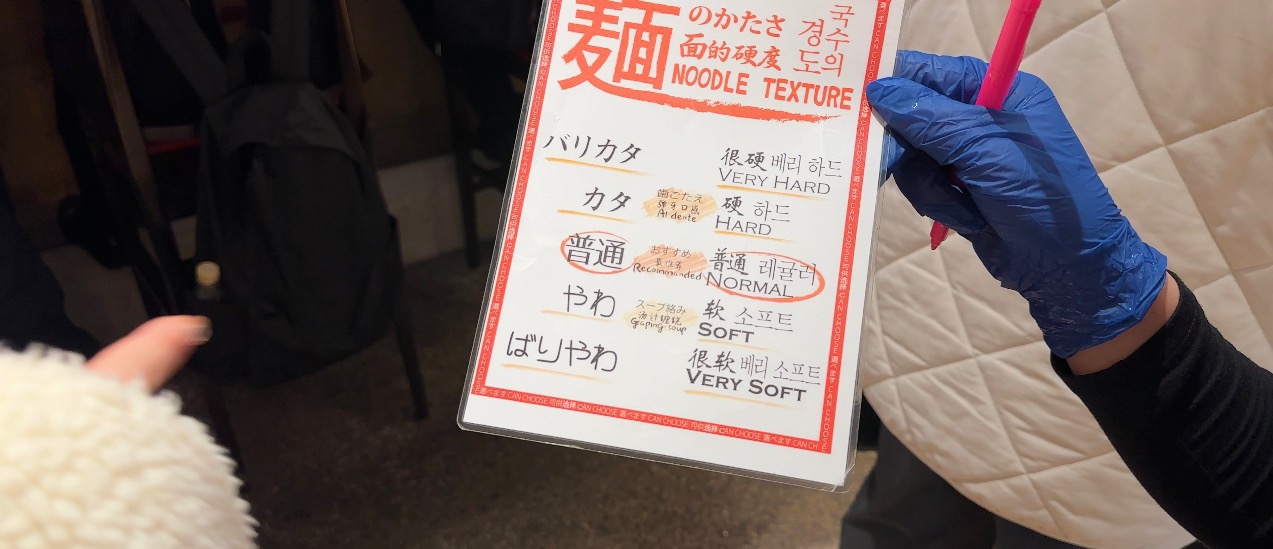 麺
のかたさ
面的硬度
국수의
경도
NOODLE TEXTURE
バリカタ
很硬 베리 하드
VERY HARD
カタ
歯ごたえ
Al dente
硬 하드
HARD
普通
おすすめ
Recommended
普通 레귤러
NORMAL
やわ
スープ絡み
Gaping soup
软 소프트
SOFT
ばりやわ
很软 베리 소프트
VERY SOFT
選べます CAN CHOOSE 可供选择 CAN CHOOSE 選べます CAN CHOOSE 可供选择 CAN CHOOSE 選べます CAN CH